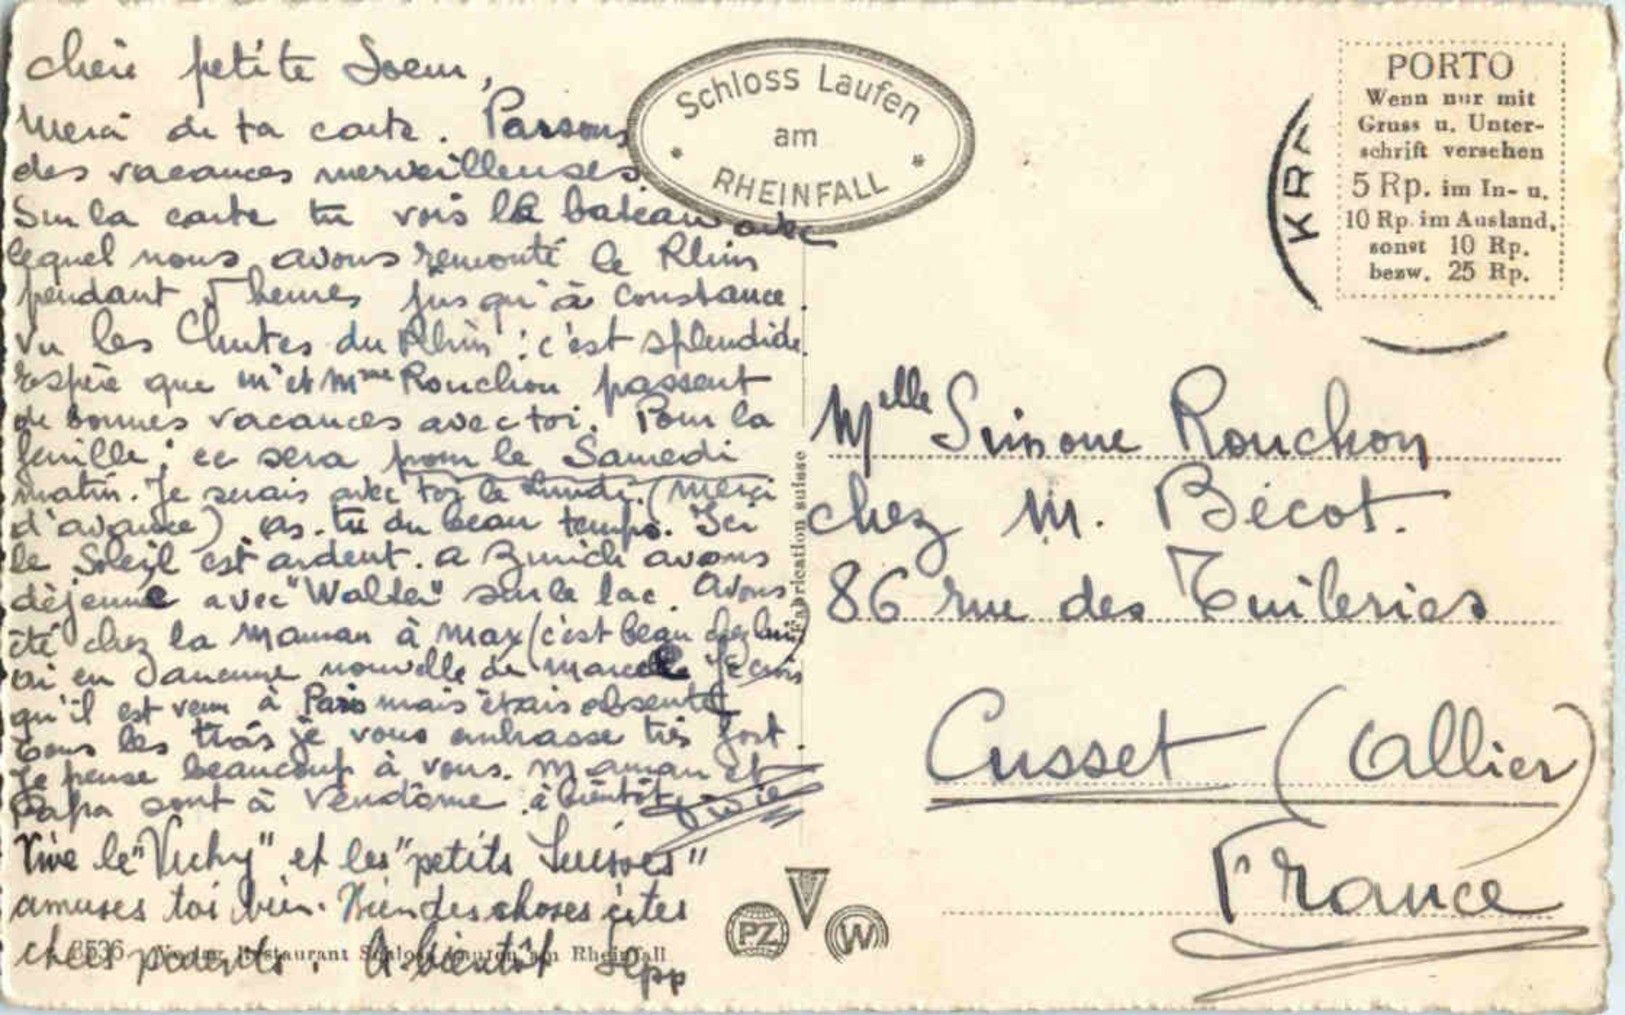 chère petite Soeur,
Merci de ta carte. Passons
des vacances merveilleuses.
Sur la carte tu vois le bateau avec
lequel nous avons remonté le Rhin
pendant 5 heures jusqu'à Constance.
Vu les Chutes du Rhin : c'est splendide.
espère que Mr et Mme Rouchon passent
de bonnes vacances avec toi. Pour la
famille ; ce sera pour le Samedi
matin. Je serais avec toi le Lundi. (merci
d'avance) as-tu du beau temps. Ici
le Soleil est ardent. a Zurich avons
déjeuné avec "Walter" sur le lac. Avons
été chez la Maman à Max (c'est beau chez lui)
ai eu aucune nouvelle de Je crois
qu'il est venu à Paris mais étais absente
Tous les trois je vous embrasse très fort.
Je pense beaucoup à vous. Maman et
Papa sont à Vendôme. à bientôt
Vive le "Vichy" et les "petits Suisses"
amuses toi bien. Bien des choses à tes
chers parents. A bientôt Sepp
3536 Restaurant Schloss Laufen am Rheinfall
Schloss Laufen
am
* RHEINFALL *
Fabrication suisse
PZ W
KRA
PORTO
Wenn nur mit
Gruss u. Unter-
schrift versehen
5 Rp. im In- u.
10 Rp. im Ausland,
sonst 10 Rp.
bezw. 25 Rp.
Melle Simone Rouchon
chez M. Bécot.
86 rue des Tuileries
Cusset (Allier)
France